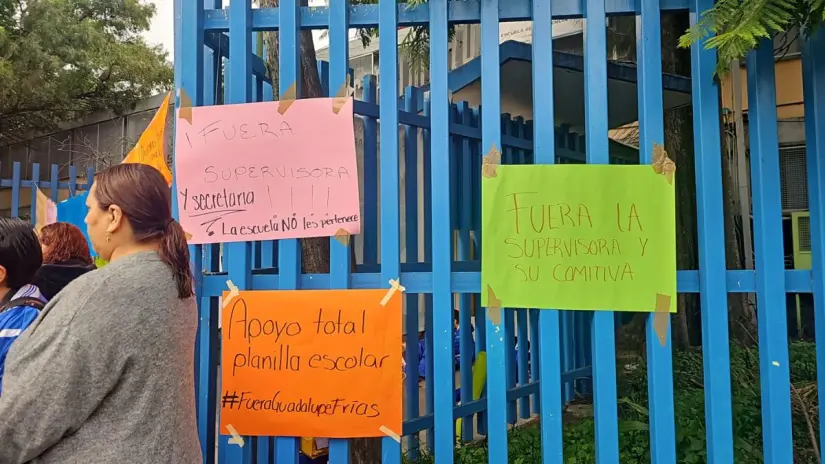 ¡FUERA
SUPERVISORA
Y secretaria !!!!
La escuelA NO les pertenece
FUERA LA
SUPERVISORA Y
SU COMITIVA
Apoyo total
planilla escolar
#FueraGuadalupeFrías